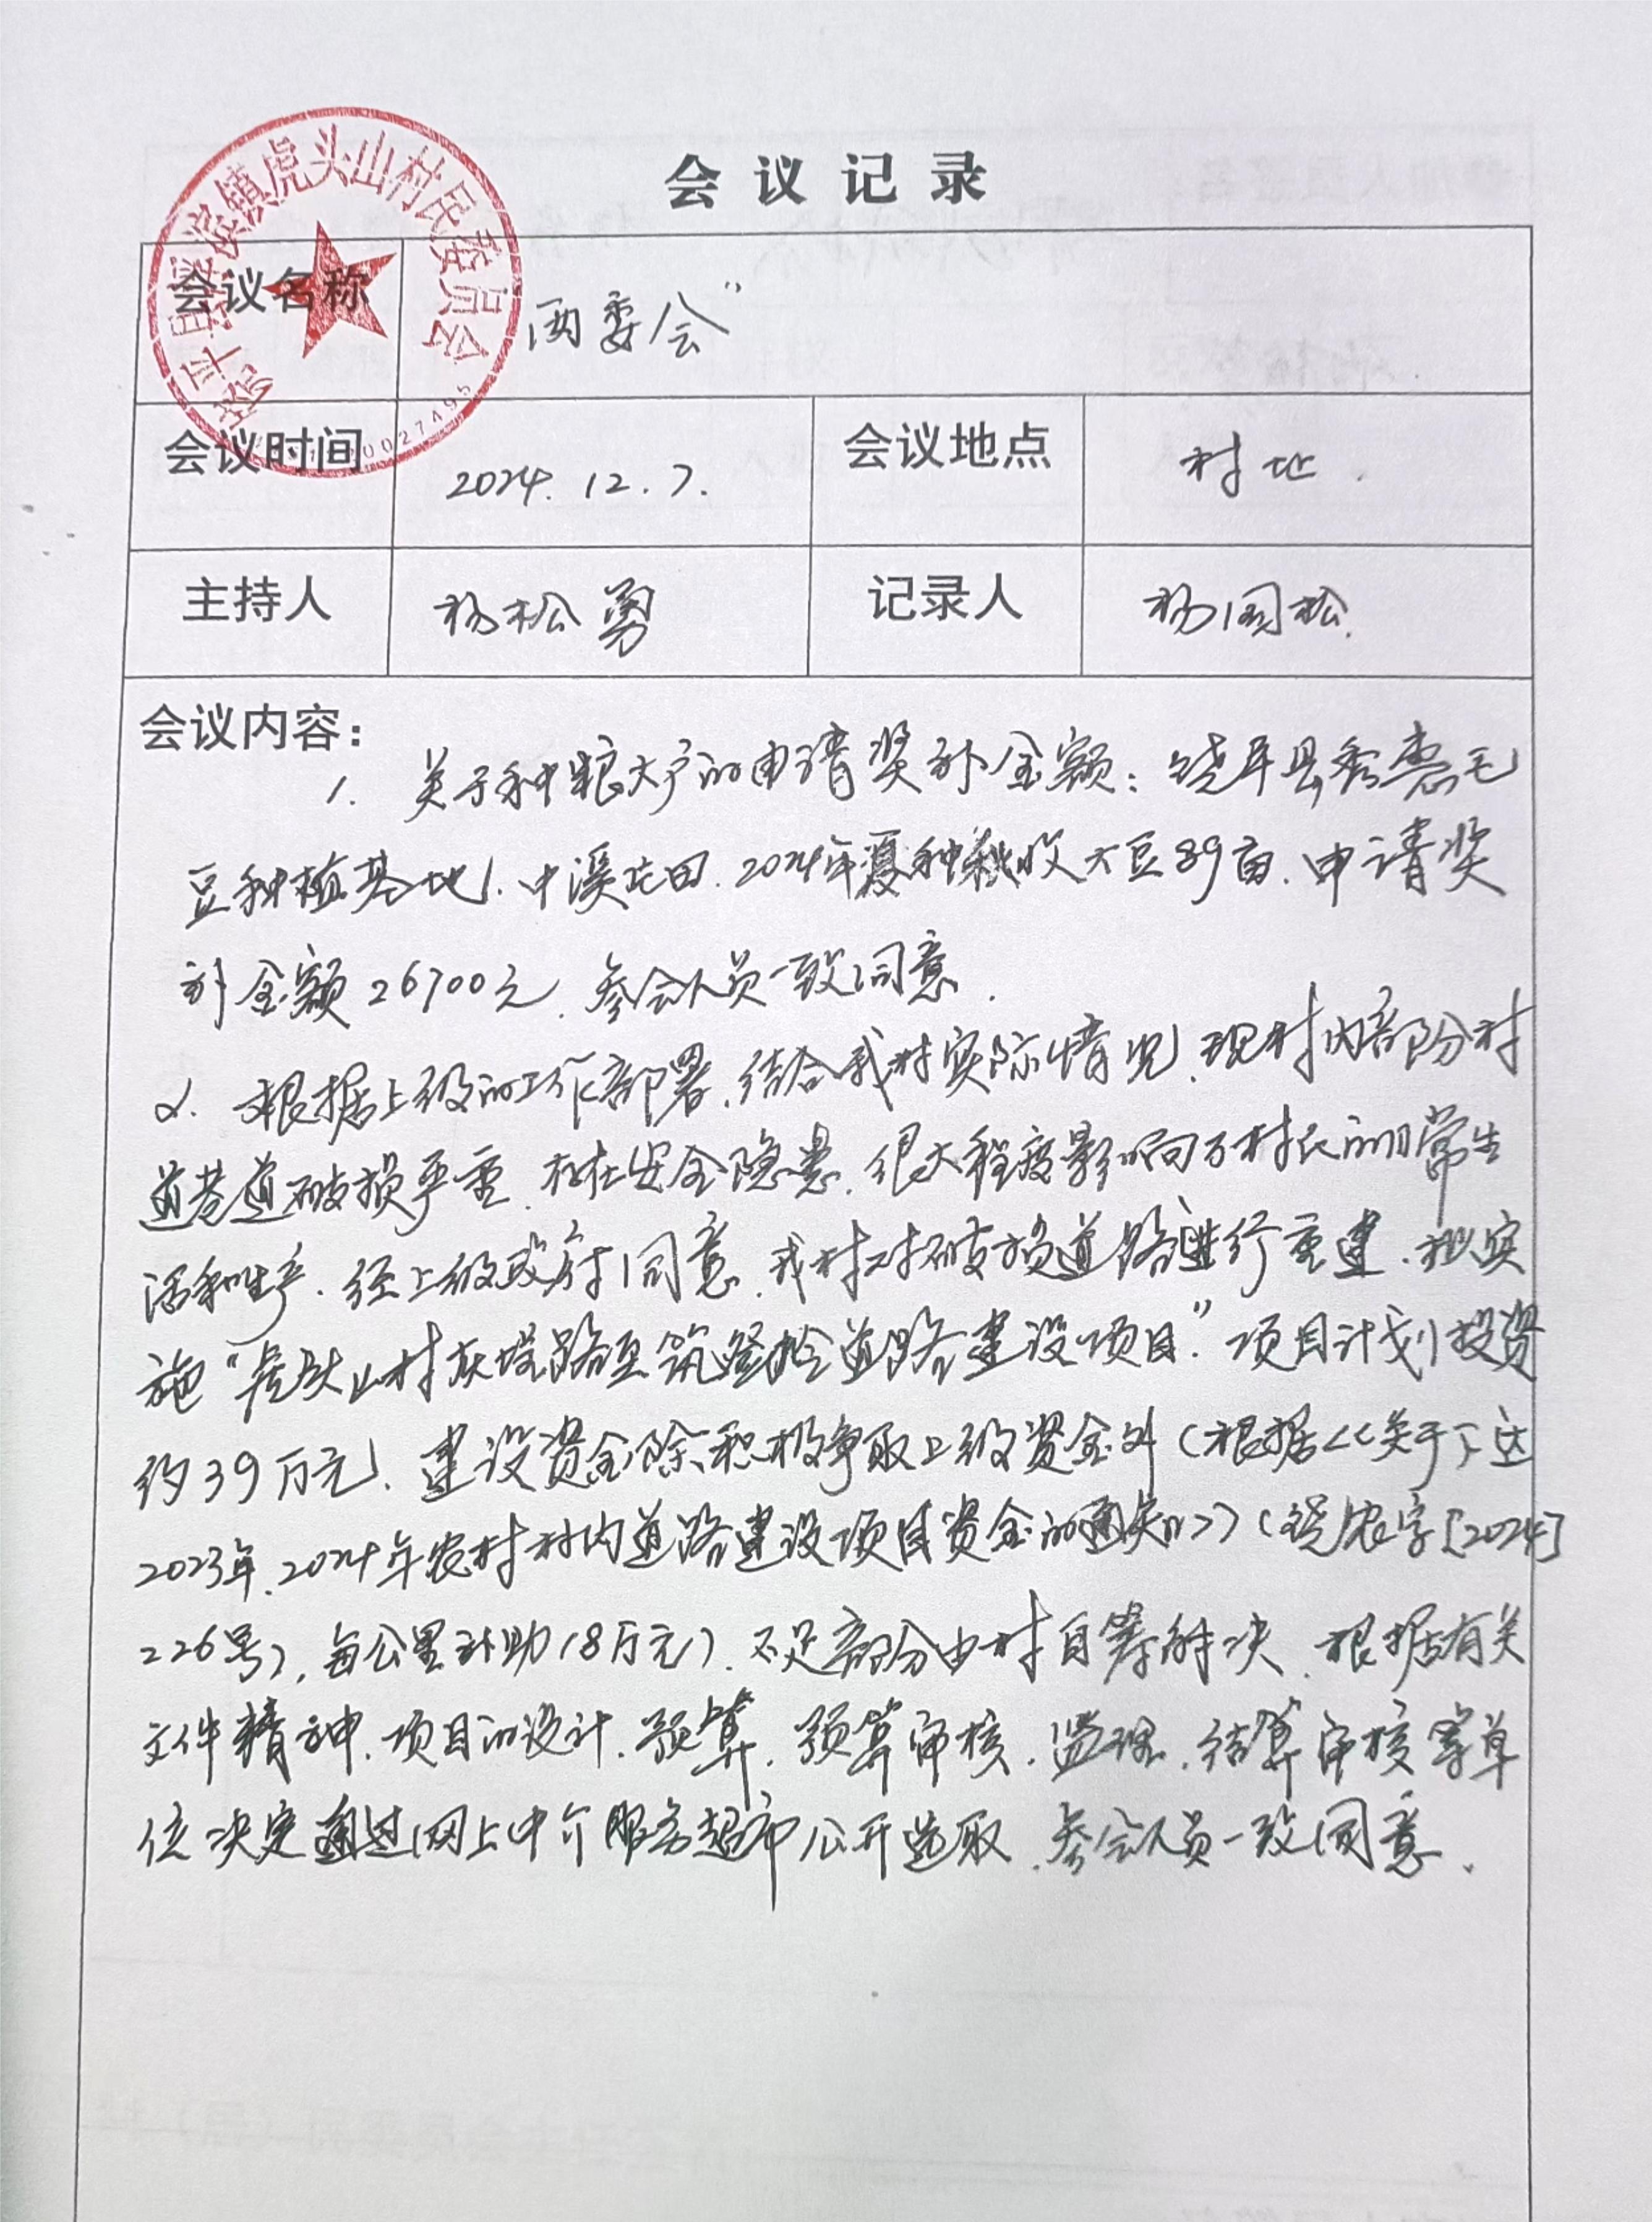 会议记录
饶平县浮滨镇虎头山村民委员会
会议名称 两委会”
会议时间 2024.12.7. 会议地点 村址.
主持人 杨松勇 记录人 杨国松.
会议内容：
1. 关于种粮大户的申请奖补金额：饶平县秀惠毛
豆种植基地、中溪片田、2024年夏种秋收大豆89亩、申请奖
补金额26700元、参会人员一致同意.
2. 根据上级的工作部署、结合我村实际情况、现村内部份村
道巷道破损严重、存在安全隐患、很大程度影响了村民的日常生
活和生产、经上级政府同意、我村对破损道路进行重建、拟实
施“虎头山村灰埕路至筑 道路建设项目”项目计划投资
约39万元、建设资金除积极争取上级资金外（根据<<关于下达
2023年、2024年农村村内道路建设项目资金的通知>>（饶农字[2024]
226号），每公里补助18万元）、不足部分由村自筹解决、根据有关
文件精神、项目的设计、预算、预算审核、监理、结算审核等单
位决定通过网上中介服务超市公开选取、参会人员一致同意.